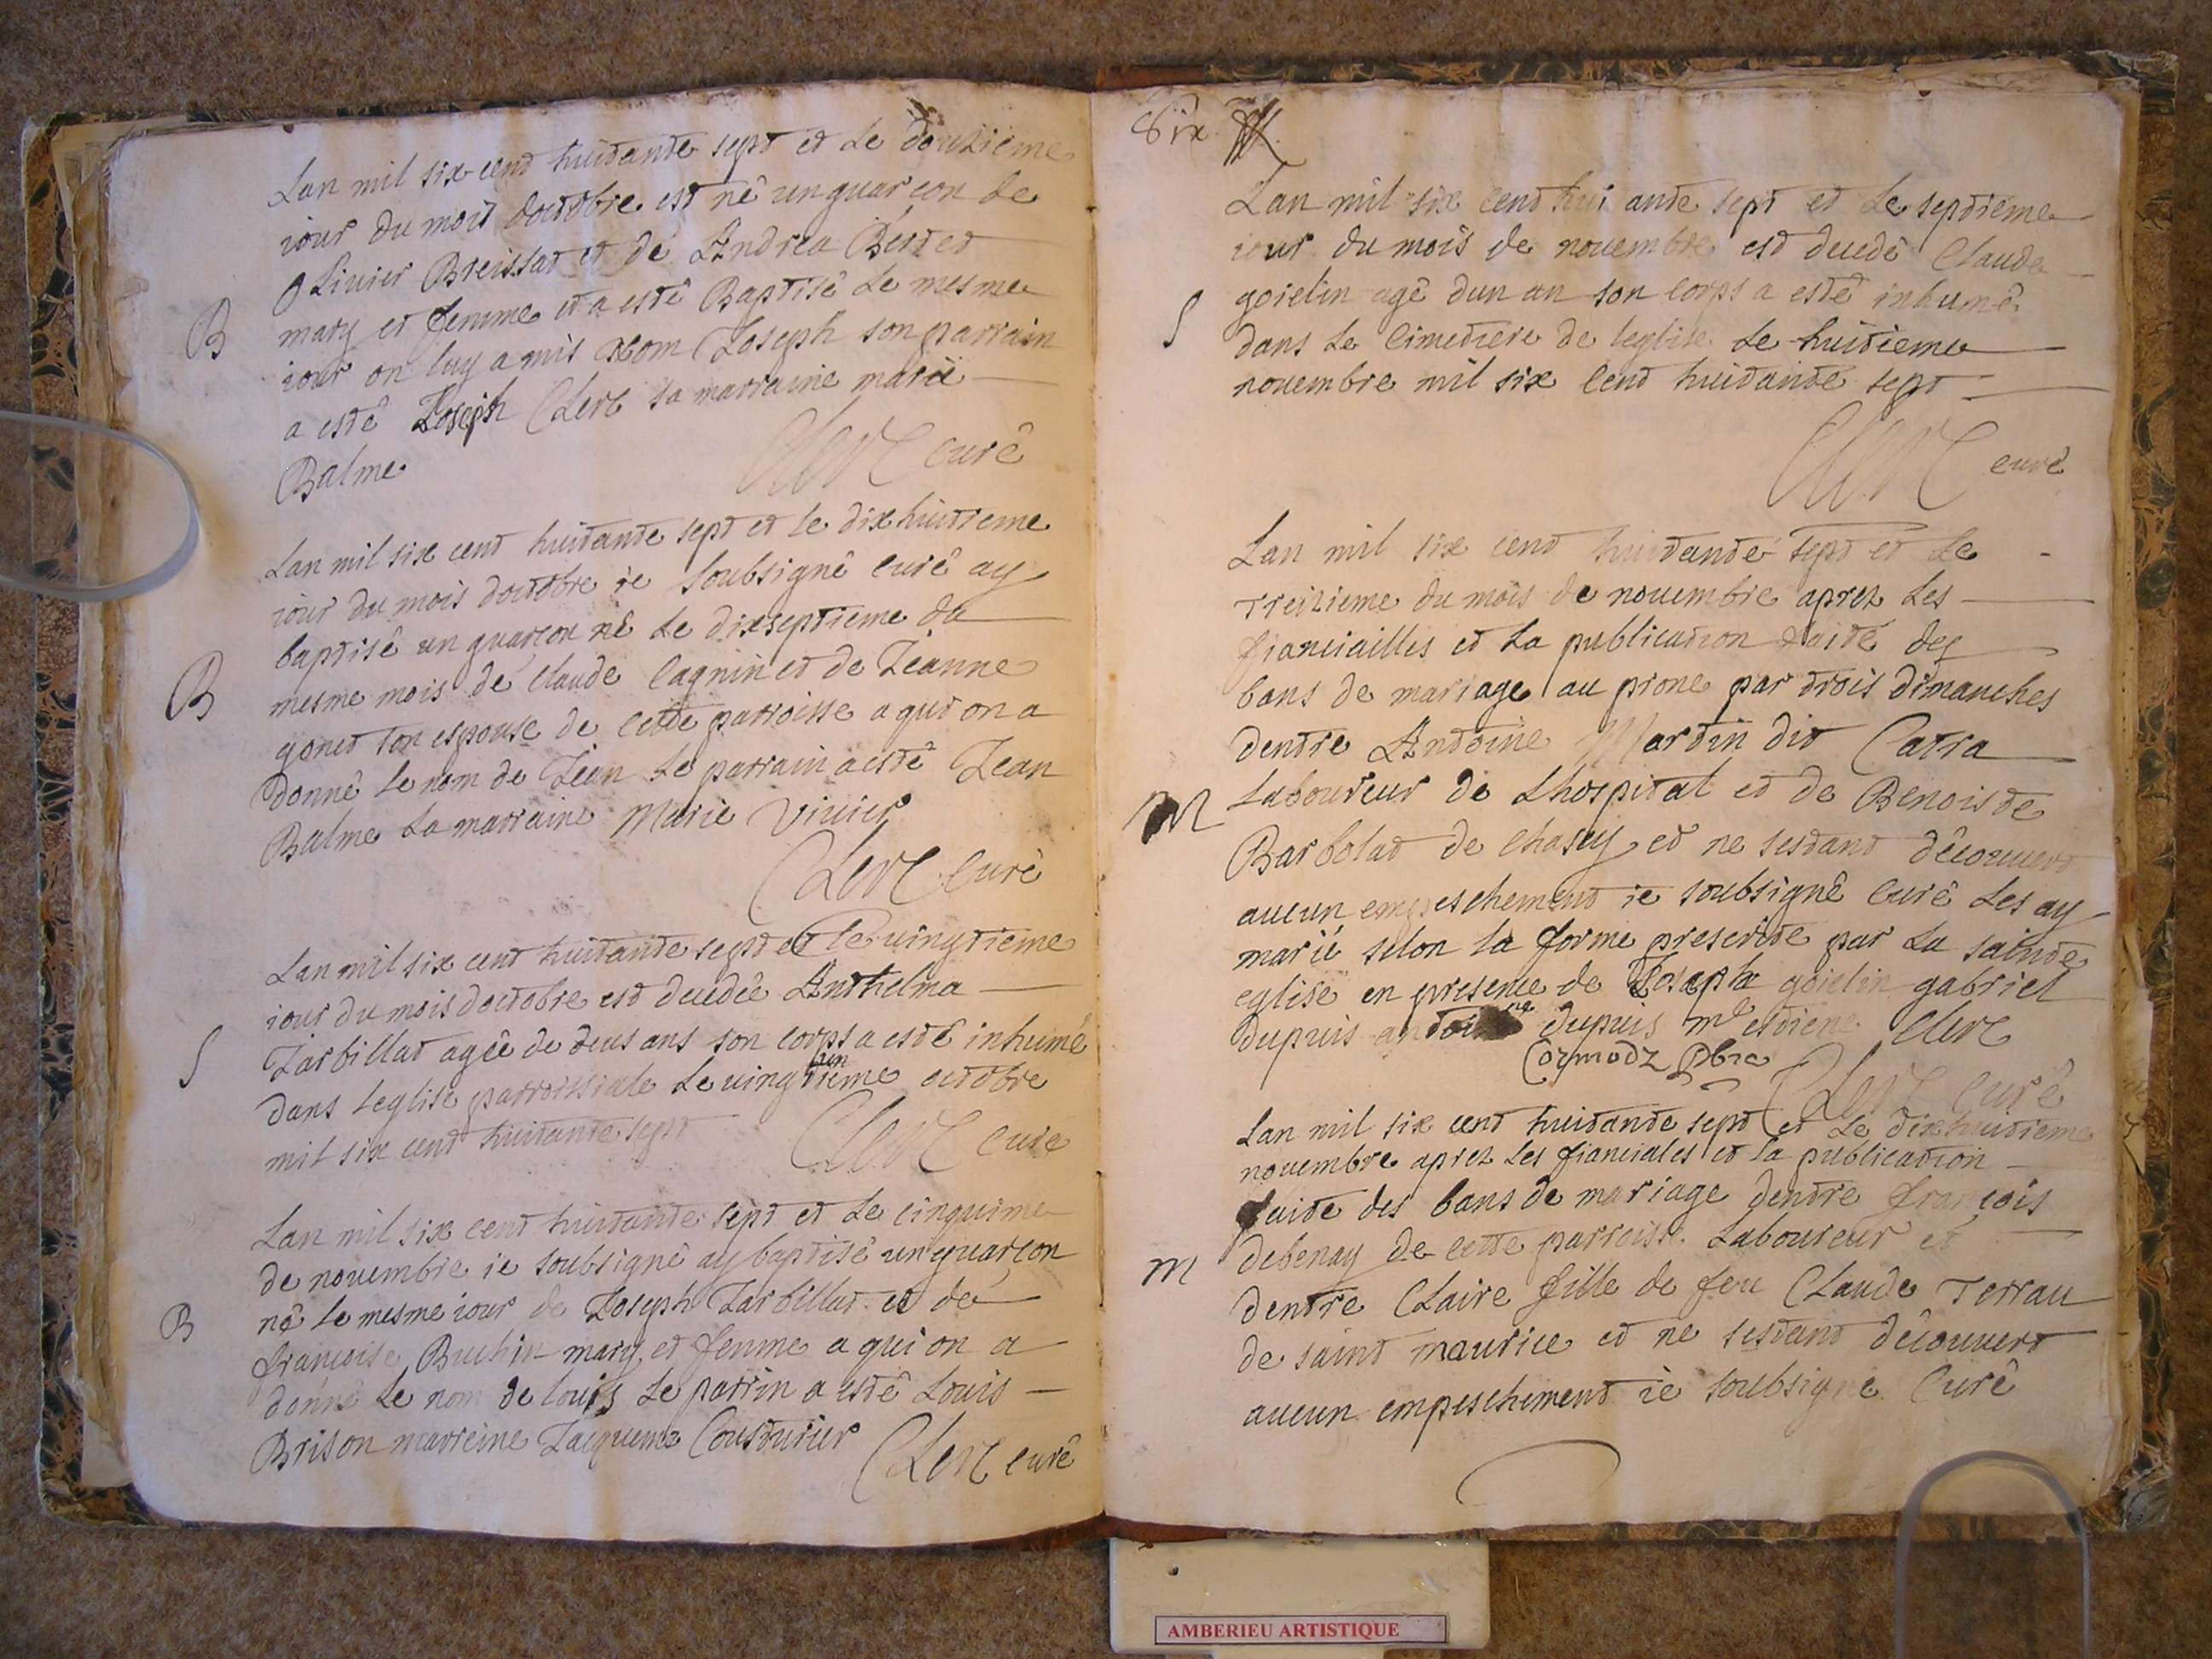 Lan mil six cent huitante sept et Le douzieme
iour du mois doctobre est né un guarcon de
Olivier Breissat et de Andrea
mary et femme et a esté Baptisé Le mesme
B
iour on luy a mis Nom Joseph son parrain
a esté Joseph Clerc sa marraine marie
Balme
Clerc curé
Lan mil six cent huitante sept et le dixhuitieme
iour du mois doctobre ie soubsigné curé ay
baptisé un guarcon né Le dixseptieme du
B
mesme mois de Claude Cagnin et de Jeanne
gonet son espouse de cette parroisse a qui on a
donné le nom de Jean Le parrain a esté Jean
Balme La marraine Marie Vivier
Clerc Curé
Lan mil six cent huitante sept et Le vingtieme
iour du mois doctobre est decedée Anthelma
S
Tarbillat agée de deus ans son corps a esté inhumé
dans leglise parroissiale Le vingt un ieme octobre
mil six cent huitante sept
Clerc curé
Lan mil six cent huitante sept et Le cinquime
de novembre ie soubsigné ay baptisé un guarcon
né le mesme iour de Joseph Tarbillat et de
B
francoise Buchin mary et femme a qui on a
donné Le nom de louis Le parrin a esté Louis
Brison marreine Jacqueme Cousturier
Clerc curé
Six
Lan mil six cent hui ante sept et Le septieme
iour du mois de novembre est decedé Claude
goielin agé dun an son corps a esté inhumé
S
dans Le Cimetiere de leglise Le huitieme
novembre mil six Cent huitante sept
Clerc curé
Lan mil six cent huitante sept et Le
treizieme du mois de novembre aprez Les
fianciailles et La publication faite des
bans de mariage au prone par trois dimanches
dentre Antoine Martin dit Catra
M
Laboureur de Lhospital et de Benoiste
Barbolat de Chasey et ne sestant découvert
aucun empeschement ie soubsigné Curé Les ay
marié selon la forme prescrite par La sainte
eglise en presence de Joseph goielin gabriel
dupuis antoine dupuis me estiene Clerc
Cormodz Pbre
Clerc Curé
Lan mil six cent huitante sept et Le dixhuitieme
novembre aprez Les fianciales et la publication
faite des bans de mariage dentre francois
debenay de cette parroisse Laboureur et
M
dentre Claire fille de feu Claude Terrau
de saint maurice et ne sestant découvert
aucun empeschement ie soubsigné Curé
AMBERIEU ARTISTIQUE